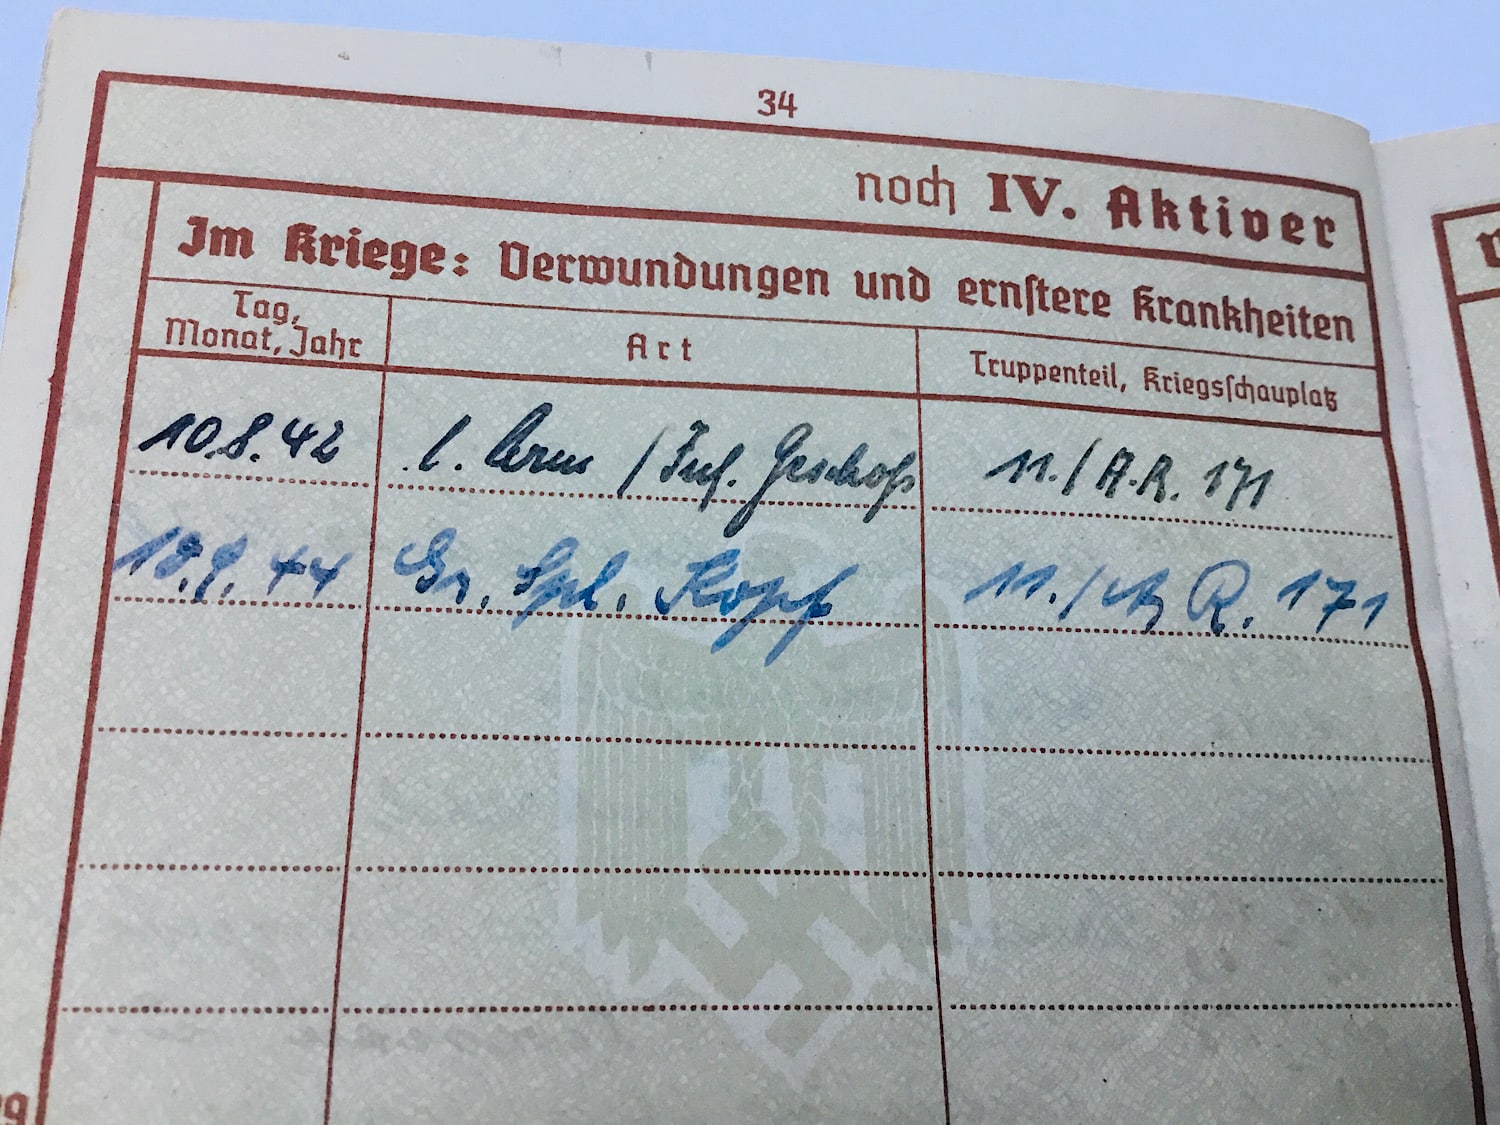 34
noch IV. Aktiver
Im Kriege: Verwundungen und ernstere Krankheiten
Tag, Monat, Jahr Art Truppenteil, Kriegsschauplatz
10.8.42 l. Arm / Inf. Geschoß 11./A.R. 171
44 Gr. Spl. Kopf 11./A R. 171